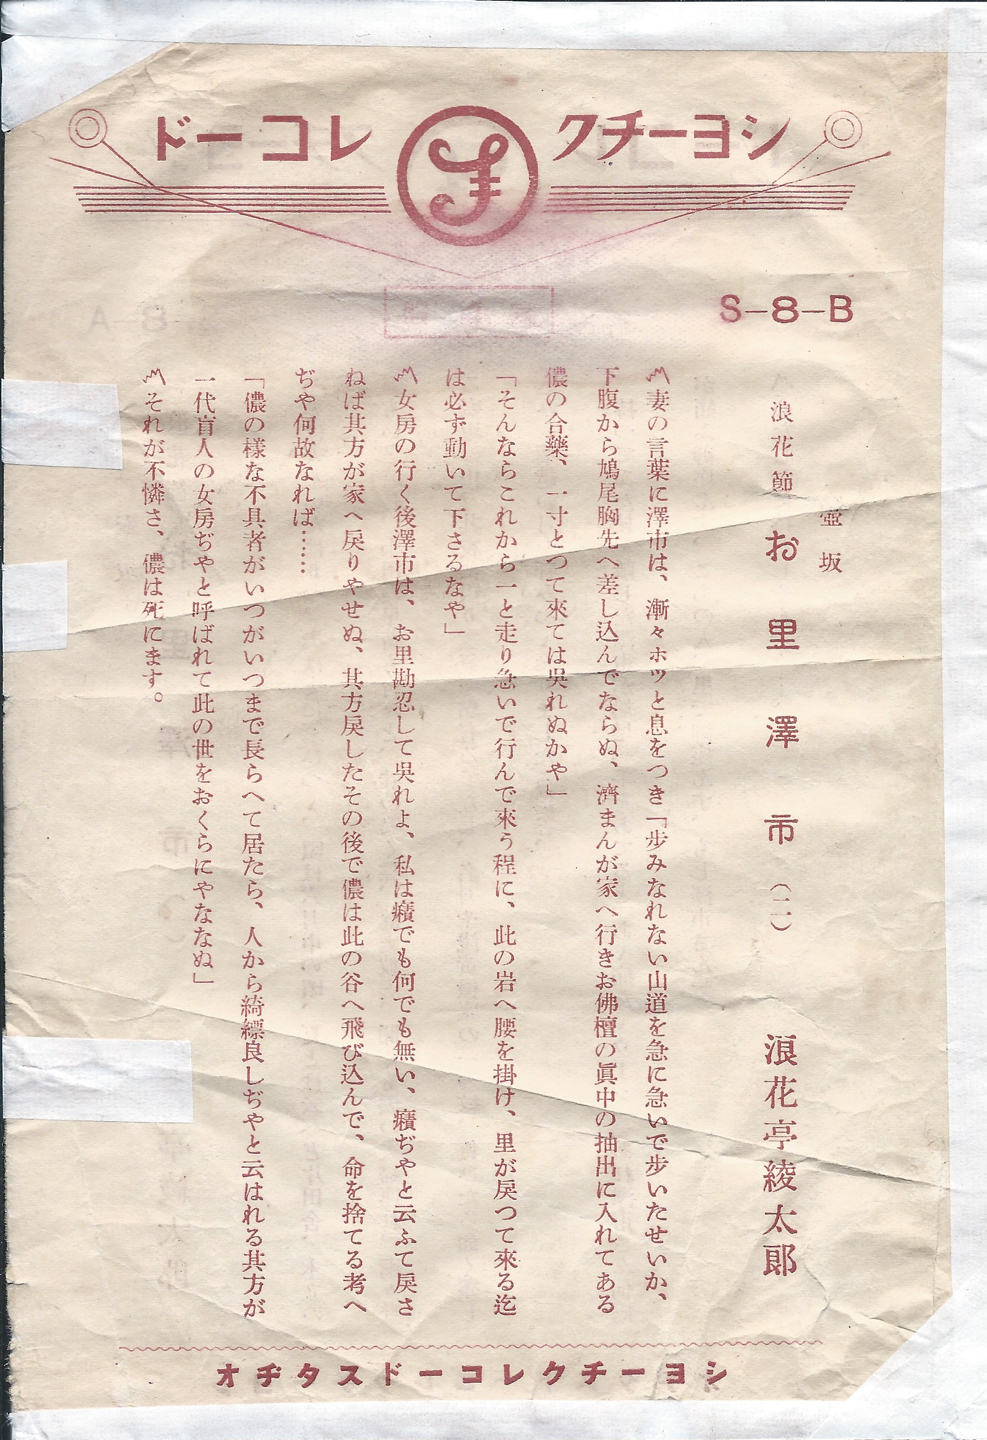 ショーチク レコード
S—8—B
壺坂
浪花節 お里澤市(二) 浪花亭綾太郎
〽妻の言葉に澤市は、漸々ホツと息をつき「歩みなれない山道を急に急いで歩いたせいか、
下腹から鳩尾胸先へ差し込んでならぬ、濟まんが家へ行きお佛檀の眞中の抽出に入れてある
儂の合藥、一寸とつて來ては吳れぬかや」
「そんならこれから一と走り急いで行んで來う程に、此の岩へ腰を掛け、里が戻つて來る迄
は必ず動いて下さるなや」
〽女房の行く後澤市は、お里勘忍して吳れよ、私は癪でも何でも無い、癪ぢやと云ふて戻さ
ねば其方が家へ戻りやせぬ、其方戻したその後で儂は此の谷へ飛び込んで、命を捨てる考へ
ぢや何故なれば……
「儂の樣な不具者がいつがいつまで長らへて居たら、人から綺縹良しぢやと云はれる其方が
一代盲人の女房ぢやと呼ばれて此の世をおくらにやななぬ」
〽それが不憐さ、儂は死にます。
ショーチクレコードスタヂオ